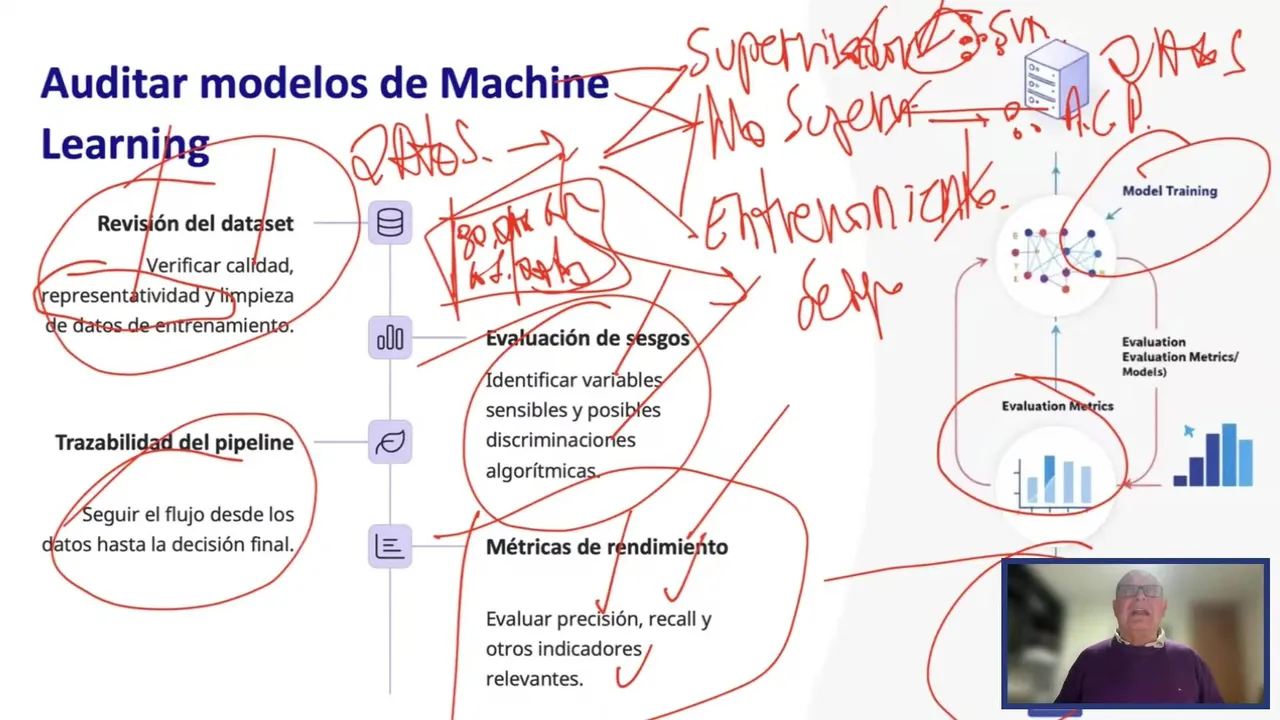 Auditar modelos de Machine
Learning
Revisión del dataset
Verificar calidad,
representatividad y limpieza
de datos de entrenamiento.
Evaluación de sesgos
Identificar variables
sensibles y posibles
discriminaciones
algorítmicas.
Trazabilidad del pipeline
Seguir el flujo desde los
datos hasta la decisión final.
Métricas de rendimiento
Evaluar precisión, recall y
otros indicadores
relevantes.
DAtos.
Supervisado
SVM
DAtos
No Super
A.C.P.
Entrenamiento.
Model Training
Evaluation
Evaluation Metrics/
Models)
Evaluation Metrics